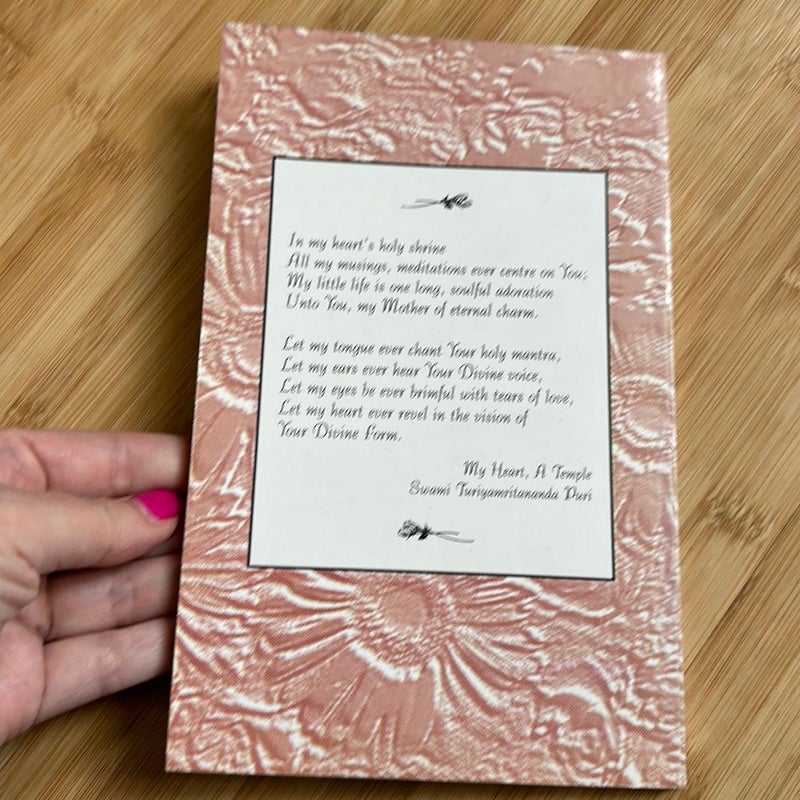 In my heart's holy shrine
All my musings, meditations ever centre on You;
My little life is one long, soulful adoration
Unto You, my Mother of eternal charm.
Let my tongue ever chant Your holy mantra,
Let my ears ever hear Your Divine voice,
Let my eyes be ever brimful with tears of love,
Let my heart ever revel in the vision of
Your Divine Form.
My Heart, A Temple
Swami Turiyamritananda Puri